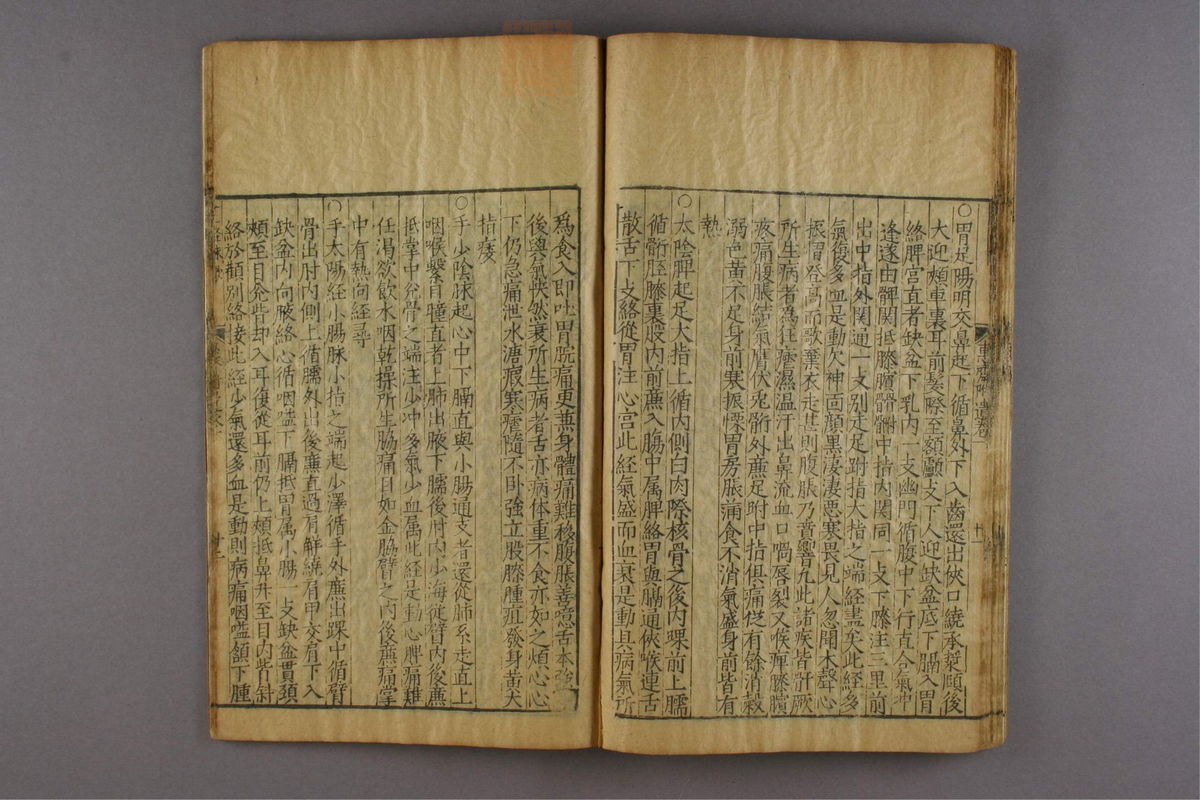 ○胃足陽明交鼻起下循鼻外下入齒還出俠口繞承漿頤後
大迎頰車裏耳前髮際至額顱支下人迎缺盆底下膈入胃
絡脾宮直者缺盆下乳内一支幽門循腹中下行直合氣冲
逢遂由髀関抵膝臏䯒跗中指内関同一支下膝注三里前
出中指外関通一支别走足跗指大指之端経盡矣此経多
氣復多血是動欠神面顔黑凄凄悪寒畏見人忽聞木聲心
振𢥠登高而歌棄衣走甚則腹脹乃賁響凢此諸疾皆骭厥
所生病者為狂瘧濕温汗出鼻流血口喎唇裂又喉痹膝臏
疼痛腹脹結氣膺伏兎骭外廉足跗中指俱痛從有餘消穀
溺色黄不足身前寒振慄胃房脹滿食不消氣盛身前皆有
熱
○太陰脾起足大指上循内側白肉際核骨之後内踝前上臑
循骭脛膝裏股内前廉入腹中属脾絡胃與膈通俠喉連舌
散舌下支絡從胃注心宮此経氣盛而血衰是動其病氣所
為食入即吐胃脘痛更兼身體痛難移腹脹善噫舌本強
後與氣快然衰所生病者舌亦病体重不食亦如之煩心心
下仍急痛泄水溏瘕寒瘧隨不卧強立股膝腫疽發身黄大
指痿
○手少陰脉起心中下膈直與小腸通支者還從肺系走直上
咽喉繫目瞳直者上肺出腋下臑後肘内少海從臂内後廉
抵掌中兊骨之端注少冲多氣少血属此経是動心脾痛難
任渴欲飲水咽乾燥所生脇痛目如金脇臂之内後廉痛掌
中有熱向経尋
○手太陽経小腸脉小指之端起少澤循手外廉出踝中循臂
骨出肘内側上循臑外出後廉直過肩解繞肩甲交肩下入
缺盆内向腋絡心循咽嗌下膈抵胃属小腸一支缺盆貫頸
頰至目兊眥却入耳復從耳前仍上頰抵鼻升至目内眥斜
絡於顴别絡接此経少氣還多血是動則病痛咽嗌頷下腫